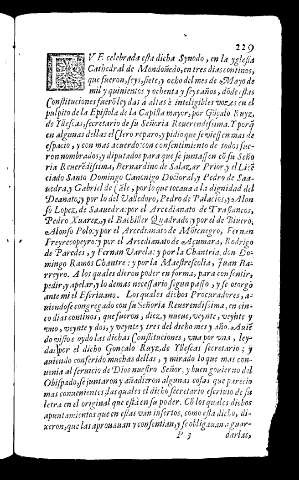 229
FVE celebrada esta dicha Synodo, en la yglesia
Cathedral de Mondoñedo, en tres dias continos,
que fueron, seys, siete, y ocho del mes de Mayo de
mil y quinientos y ochenta y seys años, dõde estas
Constituciones fuerõ leydas á altas è inteligibles vozes en el
pulpito de la Epistola de la Capilla mayor, por Gõçalo Ruyz,
de Yllescas, secretario de su Señoria Reuerendissima. Y porq̃
en algunas dellas el Clero reparo, y pidio que se viessen mas de
espacio, y con mas acuerdo: con consentimiento de todos fue-
ron nombrados, y diputados para que se juntassen cõ su Seño
ria Reuerẽdissima, Bernardino de Salazar Prior, y el Licẽ
ciado Santo Domingo Canonigo Doctoral, y Pedro de Saa-
uedra, y Gabriel de          , por lo que tocaua a la dignidad del
Deanato, y por lo del Valledoro, Pedro de Palacios, y Alon
so Lopez, de Saauedra: por el Arcedianato de Trasancos,
Pedro Xuarez, y el Bachiller Quadrado; y por el de Viuero,
Alonso Polo; y por el Arcedianato de Mõtenegro, Fernan
Freyre         ; y por el Arcedianato de Azumara, Rodrigo
de Paredes, y Fernan Varela: y por la Chantria, don Do-
mingo Ramos Chantre: y por la Maestrescolia, Juan Ra-
       . A los quales dieron poder en forma, para consentir,
pedir, y apelar, y lo demas necessario segun passo, y se otorgò
ante mi el Escriuano. Los quales dichos Procuradores, a-
uiendose congregado con su Señoria Reuerendissima, en cin-
co dias continos, que fueron, diez y nueue, veynte, veynte y
vno, veynte y dos, y veynte y tres del dicho mes y año. Auiẽ
do visto y oydo las dichas Constituciones, vna por vna, ley-
das por el dicho Gonçalo Ruyz, de Yllescas secretario; y
auiendo conferido muchas dellas, y mirado lo que mas con-
uenia al seruicio de Dios nuestro Señor, y buen gouierno del
Obispado, se juntaron y añadieron algunas cosas que parecio
mas conuenientes: las quales el dicho secretario escriuio de su
letra en el original que està en su poder. Cõ los quales dichos
apuntamientos que en estas van insertos, como està dicho, di-
xeron, que las aprouauan y consentian, y se obligauan a guar-
P 3 darlas,